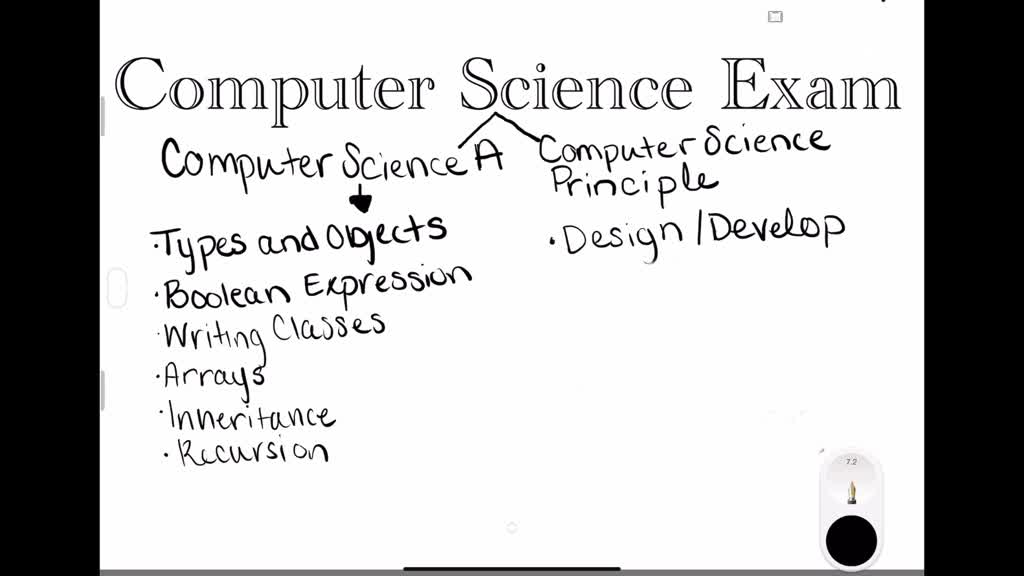 Computer Science Exam
Computer Science A
Computer Science
Principle
· Types and Objects
· Design / Develop
· Boolean Expression
· Writing Classes
· Arrays
· Inheritance
· Recursion
7.2